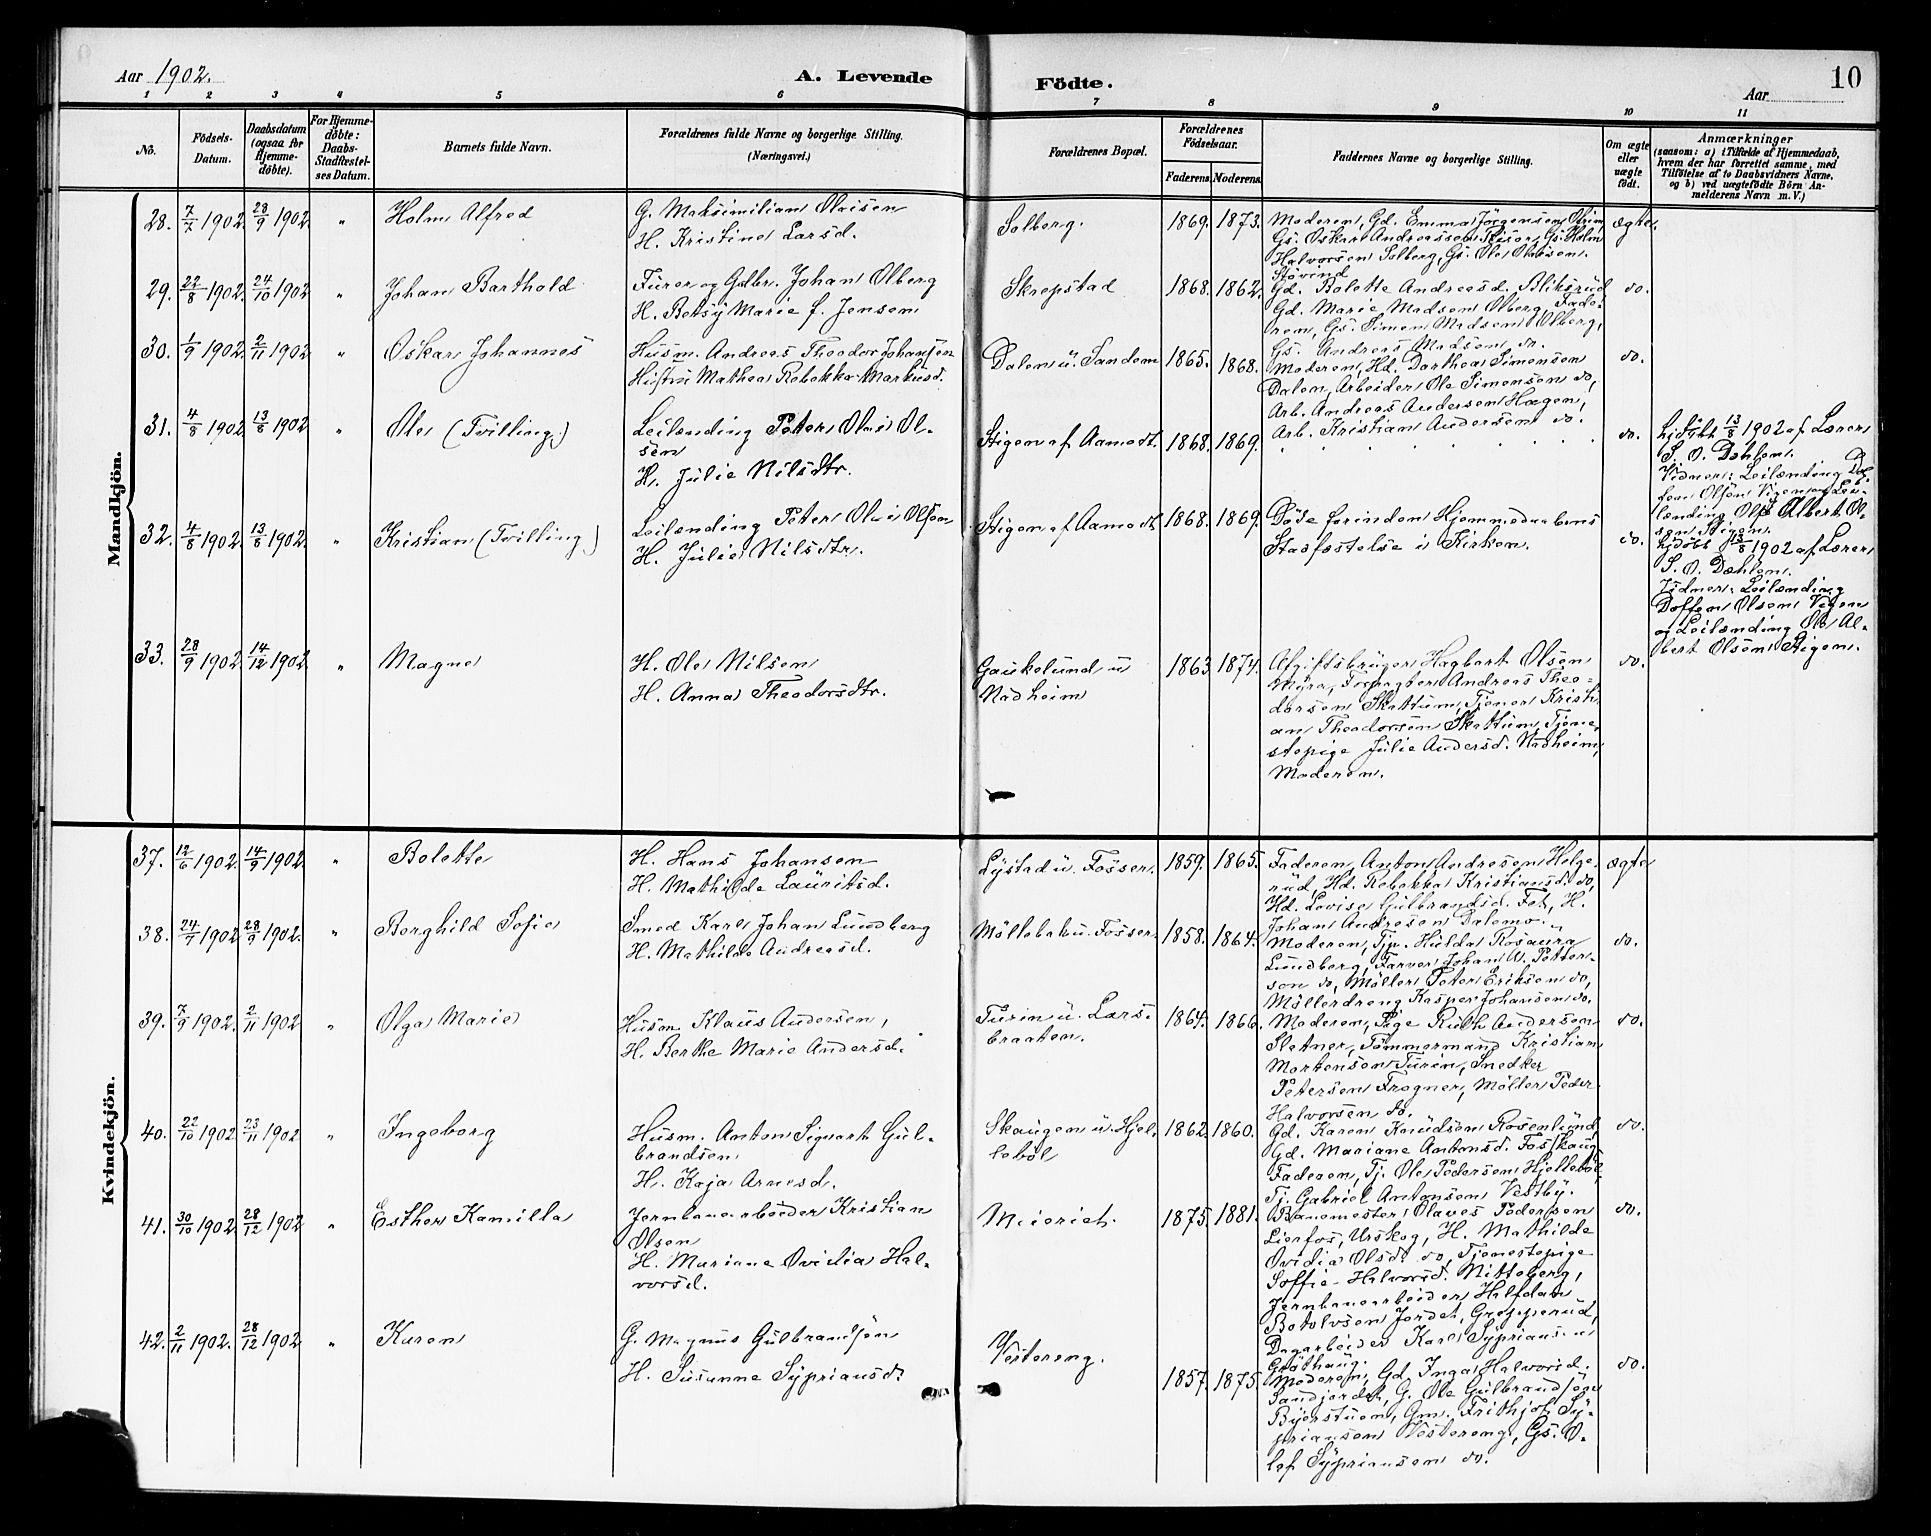 Aar 1902.
A. Levende
Födte.
Aar
10
1 2 3 4 5 6 7 8 9 10 11
No.
Födsels-
Datum.
Daabsdatum
(ogsaa for
Hjemme-
döbte).
For Hjemme-
döbte:
Daabs-
Stadfæstel-
ses Datum.
Barnets fulde Navn.
Forældrenes fulde Navne og borgerlige Stilling.
(Næringsvei.)
Forældrenes Bopæl.
Forældrenes
Födselsaar.
Faderens. Moderens.
Faddernes Navne og borgerlige Stilling.
Om ægte
eller
uægte
födt.
Anmærkninger
(saasom: a) i Tilfælde af Hjemmedaab,
hvem der har forrettet samme, med
Tilföielse af to Daabsvidners Navne.
og b) ved uægtefödte Börn An-
melderens Navn m. V.)
Mandkjön.
28. 7/7 1902. 28/9 1902 " Holm Alfred
G. Maksimilian Olaisen
H. Kristine Larsd.
Solberg. 1869. 1873.
Moderen, Gd. Emma Jörgensen
Gs. Oskar Andreassen Gs. Holm
Halvorsen Solberg, Gs. Ole Olaisen.
Støvind
ægte.
29. 22/8 1902. 24/10 1902 " Johan Barthold
Furer og Gdbr. Johan Olberg
H. Betsy Marie f. Jensen
Skrepstad 1868. 1862.
Gd. Bolette Andreasd. Bliksrud
Gd. Marie Madsen Olberg, Fade-
ren, Gs. Simen Madsen Olberg,
Gs. Andreas Madsen do.
do.
30. 1/9 1902. 2/11 1902 " Oskar Johannes
Husm. Andreas Theodor Johansen
Hustru Mathea Rebekka Markusd.
Dalen u. Sandem 1865. 1868.
Moderen, Hd. Dorthea Simensen
Dalen, Arbeider Ole Simensen do,
Arb. Andreas Andersen Hægen,
Arb. Kristian Andersen do.
do.
31. 4/8 1902. 13/8 1902 " Ole (Tvilling)
Leilænding Peter Olai Ol-
sen
H. Julie Nilsdtr.
Stigen af Aamodt. 1868. 1869.
do.
hjdøbt 13/8 1902 af Lærer
S. O. Dæhlen.
Vidner: Leilænding
Olsen Vigen og Lei-
lænding Ole Albert Ol-
sen Stigen.
32. 4/8 1902. 13/8 1902. " Kristian (Tvilling)
Leilænding Peter Olai Olsen
H. Julie Nilsdtr.
Stigen af Aamodt 1868. 1869.
Døde forinden Hjemmedaabens
Stadfæstelse i Kirken.
do.
hjdøbt 13/8 1902 af Lærer
S. O. Dæhlen.
Vidner: Leilænding
Doffen Olsen Vigen
og Leilænding Ole Al-
bert Olsen Stigen.
33. 28/9 1902. 14/12 1902 " Magne
H. Ole Nilsen
H. Anna Theodorsdtr.
Gaukelund u
Nadheim
1863 1874.
Afgiftsbruger Hagbart Olsen
Myra, Forpagter Andreas Theo-
dorsen Skattum, Tjener Kristi-
an Theodorsen Skattum, Tjene-
stepige Julie Andersd. Nadheim,
Moderen.
do.
Kvindekjön.
37. 12/6 1902. 14/9 1902 " Bolette
H. Hans Johansen
H. Mathilde Lauritsd.
Lystad u. Fosser. 1859. 1865.
Faderen, Anton Andresen Helge-
rud, Hd. Rebekka Kristiansd. do,
Hd. Lovise Gulbrandsd. Fet, H.
Johan Andresen Dalemo.
ægte
38. 24/7 1902 28/9 1902. " Borghild Sofie
Smed Karl Johan Lundberg
H. Mathilde Andreasd.
Möllebak u. Fosser. 1858. 1864.
Moderen, Tjp. Hulda Rosaura
Lundberg, Farver Johan A. Petter-
son do, Møller Peter Eriksen do,
Møllerdreng Kasper Johansen do.
do.
39. 7/9 1902. 2/11 1902 " Olga Marie
Husm. Klaus Andersen,
H. Berthe Marie Andersd.
Turin u. Lars-
braaten.
1864. 1866.
Moderen, Pige Ruth Andersen
Sletner, Tømmermand Kristian
Mortensen Turin, Snedker
Petersen Frogner, Møller Peder
Halvorsen do.
do.
40. 22/10 1902 23/11 1902 " Ingeborg
Husm. Anton Sigvart Gul-
brandsen
H. Kaja Arnesd.
Skaugen u. Hjel-
lebøl
1862. 1860.
Gd. Karen Knudsen Rosenlund,
Gd. Mariane Antonsd. Fosskaug,
Faderen, Tj. Ole Pedersen Hjellebøl,
Tj. Gabriel Antonsen Vestby.
do.
41. 30/10 1902 28/12 1902 " Esther Kamilla
Jernbanearbeider Kristian
Olsen
H. Mariane Ovidia Hal-
vorsd.
Meieriet. 1875. 1881.
Banemester Olaves Pedersen
Lierfos, Urskog, H. Mathilde
Ovidia Olsd. do, Tjenestepige
Soffie Halvorsd. Mitteberg,
Jernbanearbeider Halfdan
Botolvsen Jordet, Grepperud,
Dagarbeider Karl Sypriansen
Gröthaug.
do.
42. 2/11 1902. 28/12 1902 " Karen
G. Magnus Gulbrandsen
H. Susanne Sypriansd.
Vestereng. 1857. 1875.
Moderen, Gd. Inga Halvorsd.
Sandjordet, G. Ole Gulbrandsen
Byerstuen, Gm. Frithjof Sy-
priansen Vestereng, Gs. O-
laf Sypriansen do.
do.